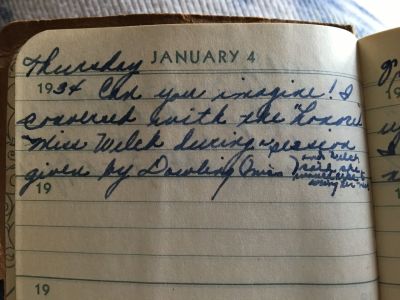 Thursday JANUARY 4
1934 Can you imagine! I
conversed with the "Honored
Miss Welch during a session
given by Dowling Miss and Welch
said she
19
19